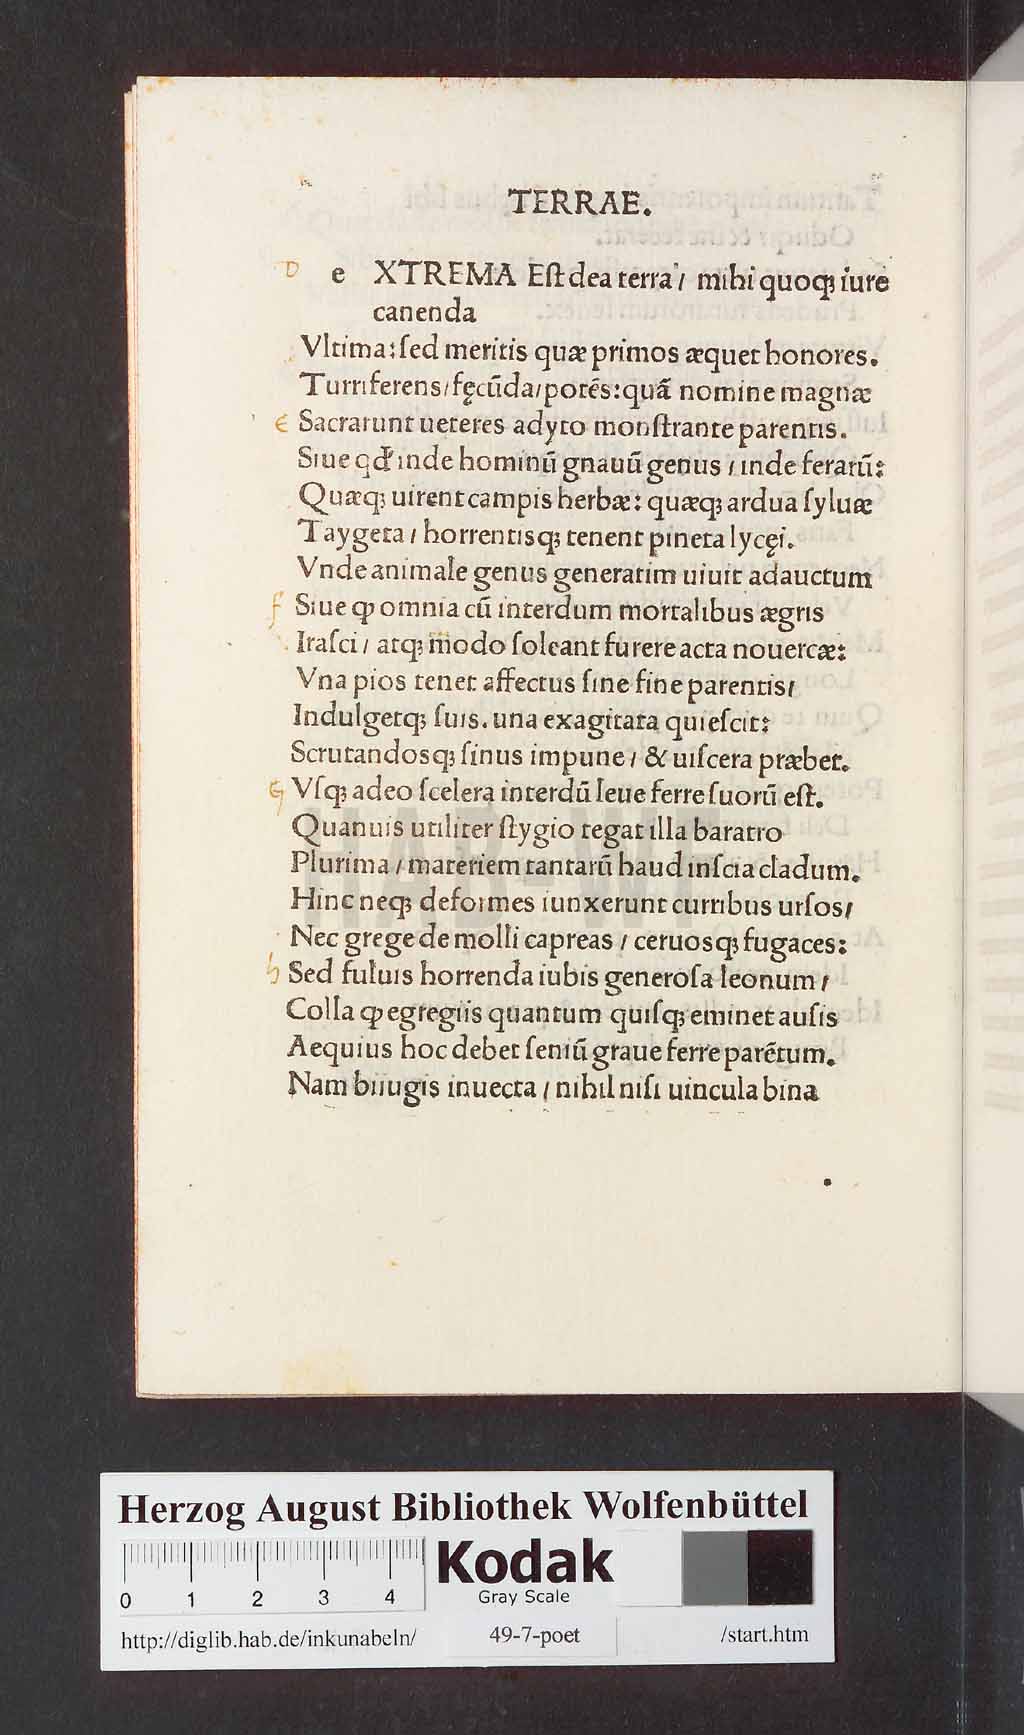 TERRAE.
D e XTREMA Eſt dea terra / mihi quoqꝫ iure
canenda
Vltima: ſed meritis quæ primos æquet honores.
Turriferens / fęcūda / potēs: quā nomine magnæ
E Sacrarunt ueteres adyto monſtrante parentis.
Siue qđ inde hominū gnauū genus / inde ferarū:
Quæqꝫ uirent campis herbæ: quæqꝫ ardua ſyluæ
Taygeta / horrentisqꝫ tenent pineta lycęi.
Vnde animale genus generatim uiuit adauctum
f Siue ꝙ omnia cū interdum mortalibus ægris
Iraſci / atqꝫ modo ſoleant furere acta nouercæ:
Vna pios tenet affectus ſine fine parentis /
Indulgetqꝫ ſuis. una exagitata quieſcit:
Scrutandosqꝫ ſinus impune / & uiſcera præbet.
G Vſqꝫ adeo ſcelera interdū leue ferre ſuorū eſt.
Quanuis utiliter ſtygio tegat illa baratro
Plurima / materiem tantarū haud inſcia cladum.
Hinc neqꝫ deformes iunxerunt curribus urſos /
Nec grege de molli capreas / ceruosqꝫ fugaces:
h Sed fuluis horrenda iubis generoſa leonum /
Colla ꝙ egregiis quantum quiſqꝫ eminet auſis
Aequius hoc debet ſeniū graue ferre parētum.
Nam biiugis inuecta / nihil niſi uincula bina
HAB-WF
Herzog August Bibliothek Wolfenbüttel
0 1 2 3 4
Kodak
Gray Scale
http://diglib.hab.de/inkunabeln/ 49-7-poet /start.htm